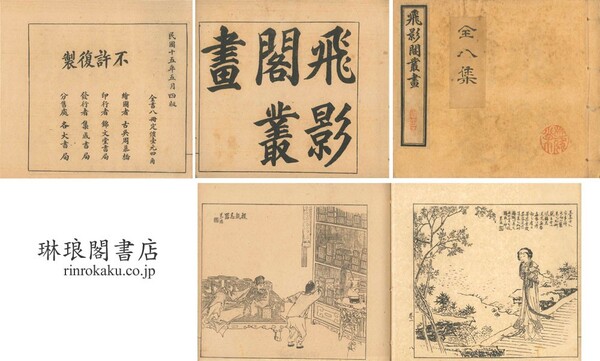 民國十五年五月四版
全書八冊定價壹元四角
不許復製
繪圖者 古吳周慕橋
印行者 錦文堂書局
發行者 集成書局
分售處 各大書局
飛影
閣叢
畫
全八集
飛影閣叢畫
琳琅閣書店
rinrokaku.co.jp